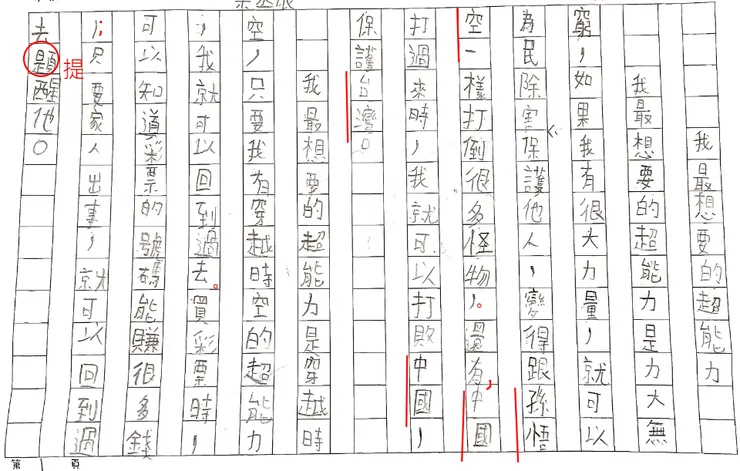 我最想要的超能力
我最想要的超能力是力大無
窮，如果我有很大力量，就可以
為民除害保護他人，變得跟孫悟
空一樣打倒很多怪物。還有，中國
打過來時，我就可以打敗中國，
保護台灣。
我最想要的超能力是穿越時
空，只要我有穿越時空的超能力
，我就可以回到過去。買彩票時，
可以知道彩票的號碼能賺很多錢
；只要家人出事，就可以回到過
去題醒他。
提
第 頁